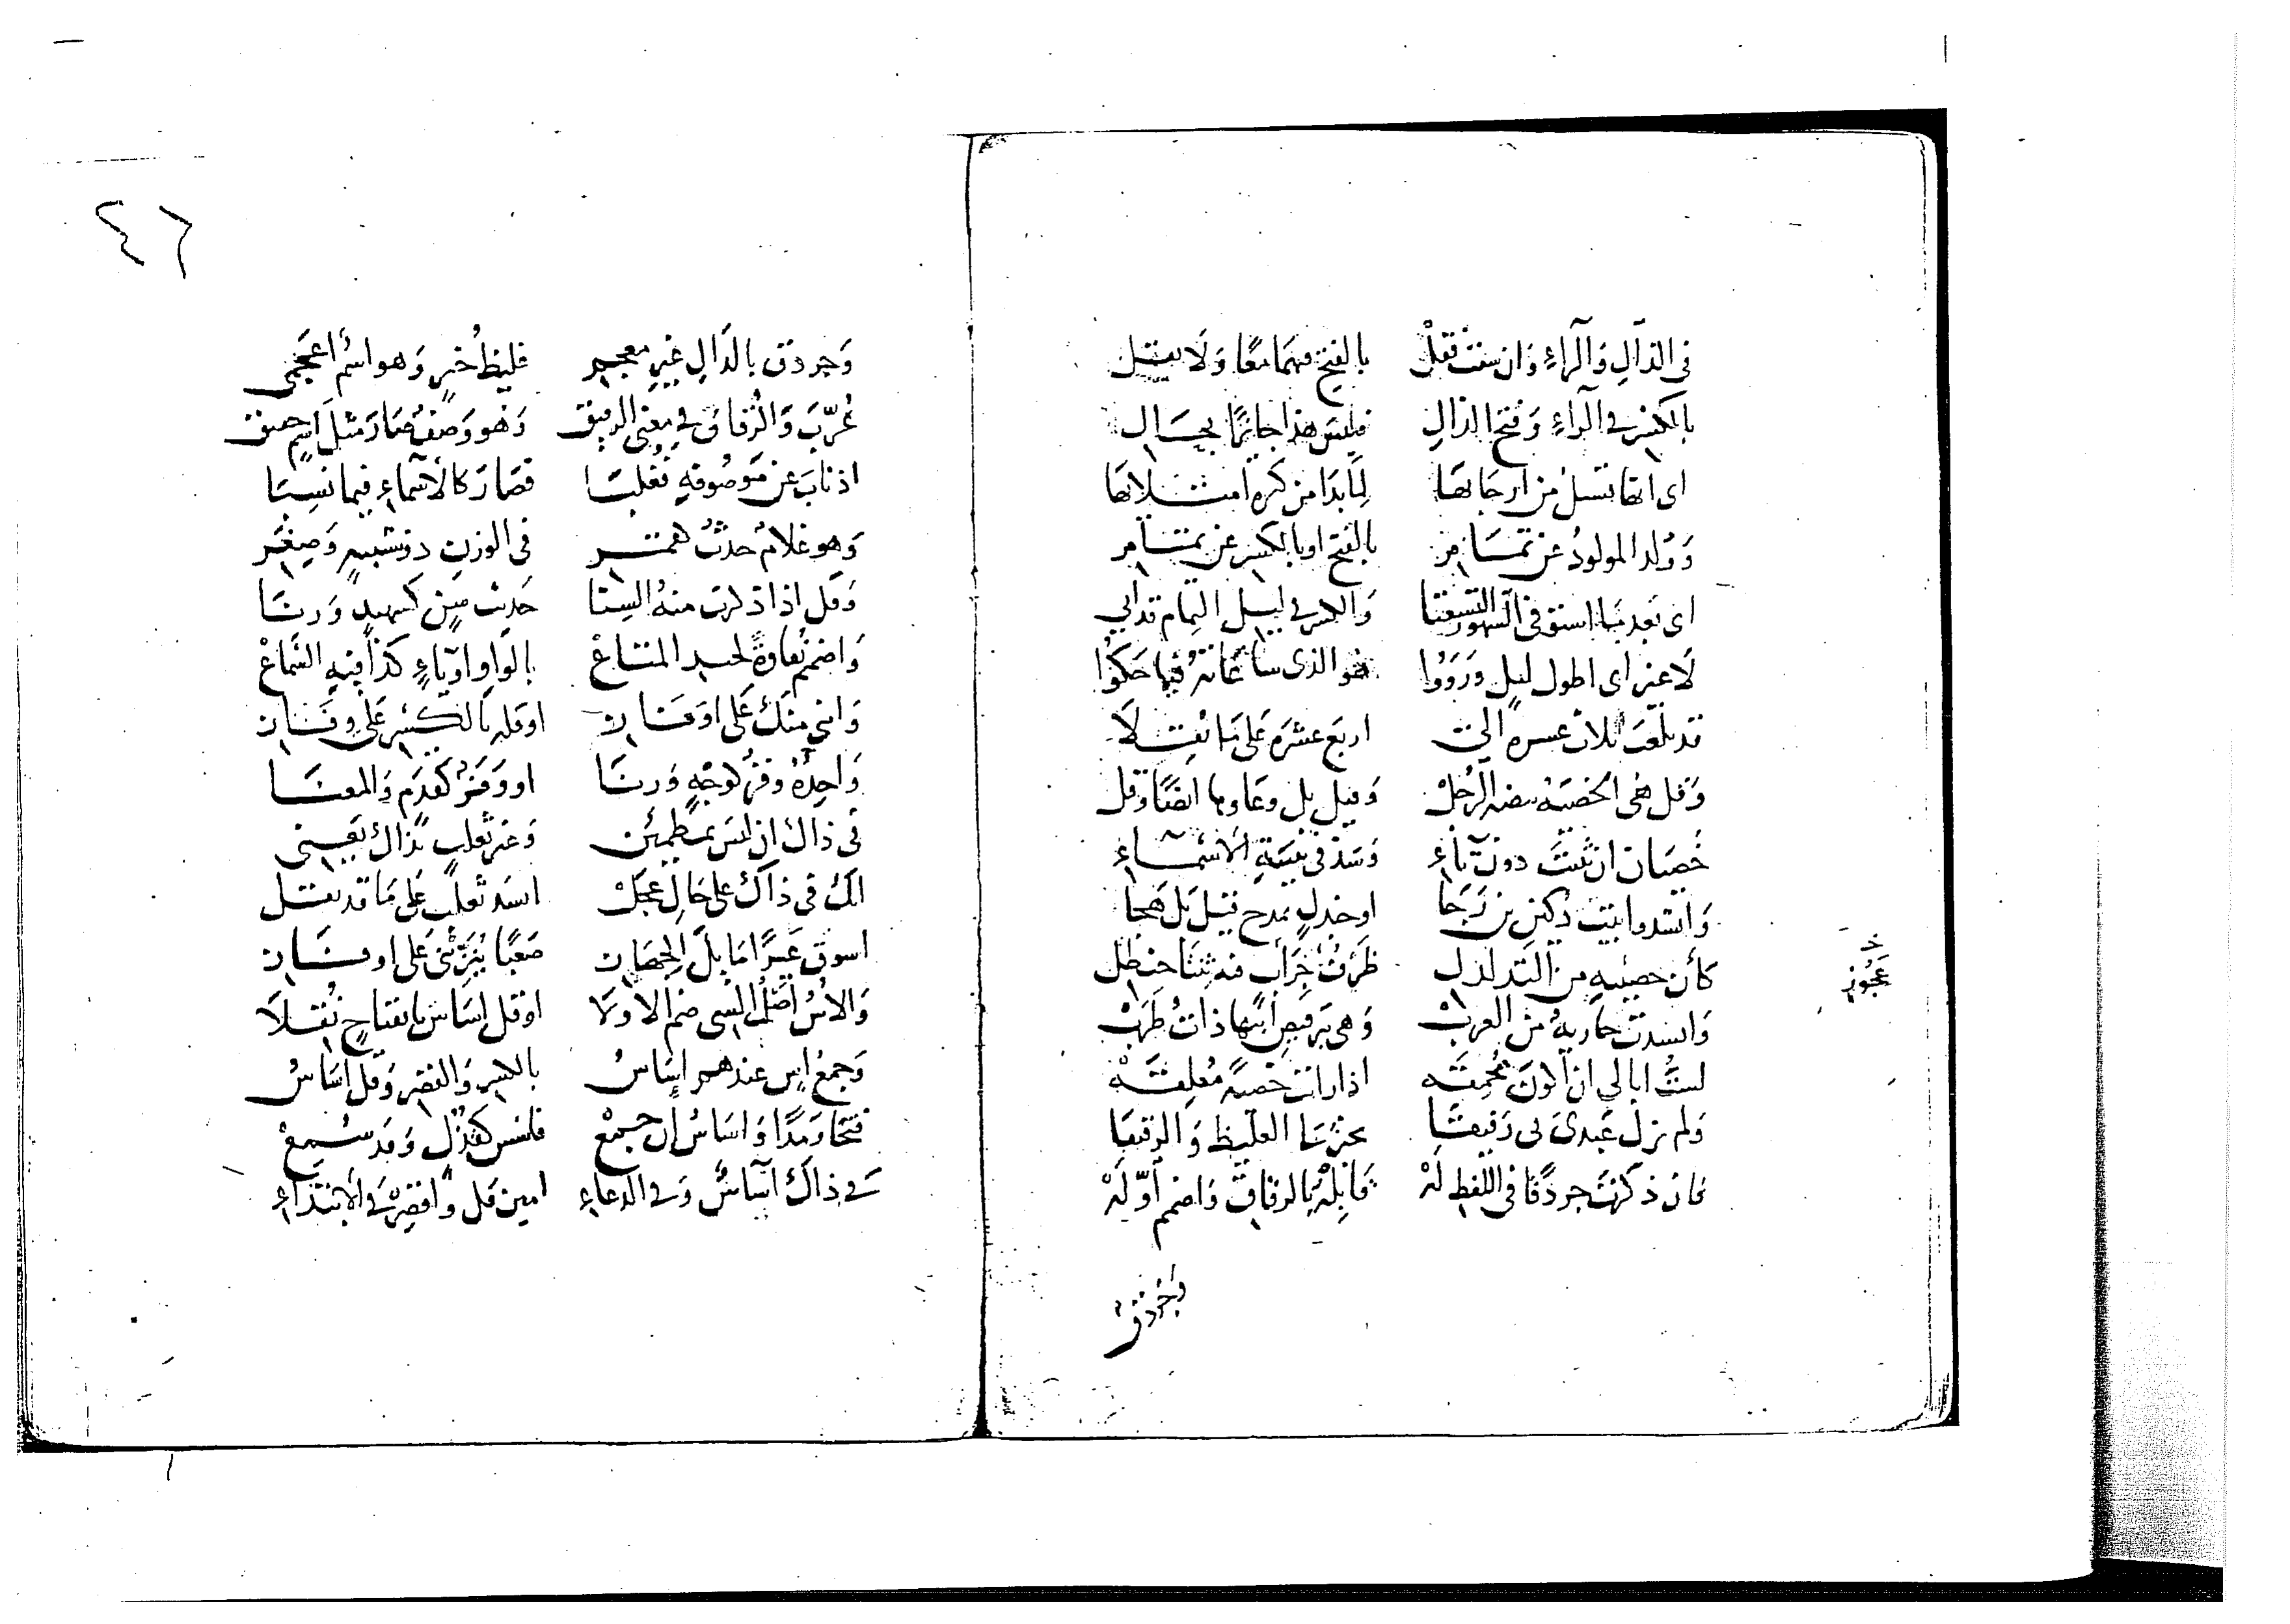 في الذال والراء وان شئت فقل بالفتح فيهما معا ولا يقل
بالكسر في الراء وفتح الذال فليس هذا جائزا بحال
اى انها تنسل من ارجائها لما بدا من كره امتلائها
وولد المولود عن تمام بالفتح او بالكسر عن تمام
اى بعد ما استوفى الشهور التسعا والكسر في ليل التمام قد
لا غير اى اطول ليل ورووا هو الذى ساعاته فيما حكوا
قد بلغت ثلاث عشرة الى اربع عشرة على ما نقلا
وقل هى الخصية بيضة الرجل وقيل بل وعاوها ايضا وقل
خصيان ان ثنيت دون تاء وشذ في تثنية الاسماء
وانشدوا بيت دكين بن رجا او جندل يمدح قيل بل هجا
كأن خصييه من التدلدل ظرف جراب فيه ثنتا حنظل
عجوز
وانشدت جارية من العرب وهى ترقص ابنها ذات طرب
لست ابالي ان اكون محمقه اذا رايت خصية معلقه
ولم يزل عبدى لى رقيقا يخبزنا الغليظ والرقيقا
فان ذكرت جردقا في اللفظ له قابله بالرقاق واضمم اوله
وجردق
٤٦
وجردق بالدال غير معجم غليظ خبز وهو اسم اعجمى
عرب والرقاق في معنى الرقيق وهو وصف صار مثل اسم حقيق
اذ ناب عن موصوفه فغلبا فصار كالاسماء فيما نسبا
وهو غلام حدث همتم في الوزن دون شبه وصغر
وقل اذا ذكرت منه السنا حديث سن كشهيد وزنا
واضمم نقاوة لجيد المتاع بالواو او ياء كذا فيه السماع
وانى منك على اوفاز او قل بالكسر على وفاز
واحده وفز لوجه وزنا او وفز كقدم والمعنا
في ذاك ان ليس بمطمئن وعن ثعلب بذاك يعنى
انك في ذاك على حال عجل انشد ثعلب على ما قد نقل
اسوق عيرا مائل الجهاز صعبا ينزينى على اوفاز
والاس اصل الشى ضم الاولا او قل اساس بانفتاح نقلا
وجمع اس عندهم اساس بالكسر والقصر وقل اساس
فتحا ومدا واساس ان جمع فلنس كقذل وقد سمع
في ذاك آساس وفي الدعاء امين قل واقصر في الابتداء